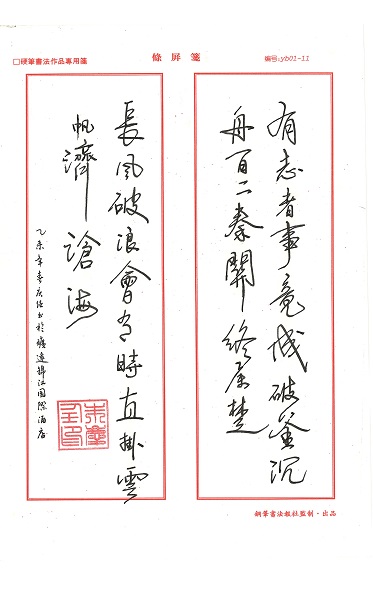 □硬筆書法作品專用箋
條屏箋
编号:yb01-11
有志者事竟成破釜沉
舟百二秦關終属楚
長風破浪會有時直掛雲
帆濟滄海
乙未年书於錦江国际酒店
鋼筆書法報社監制·出品